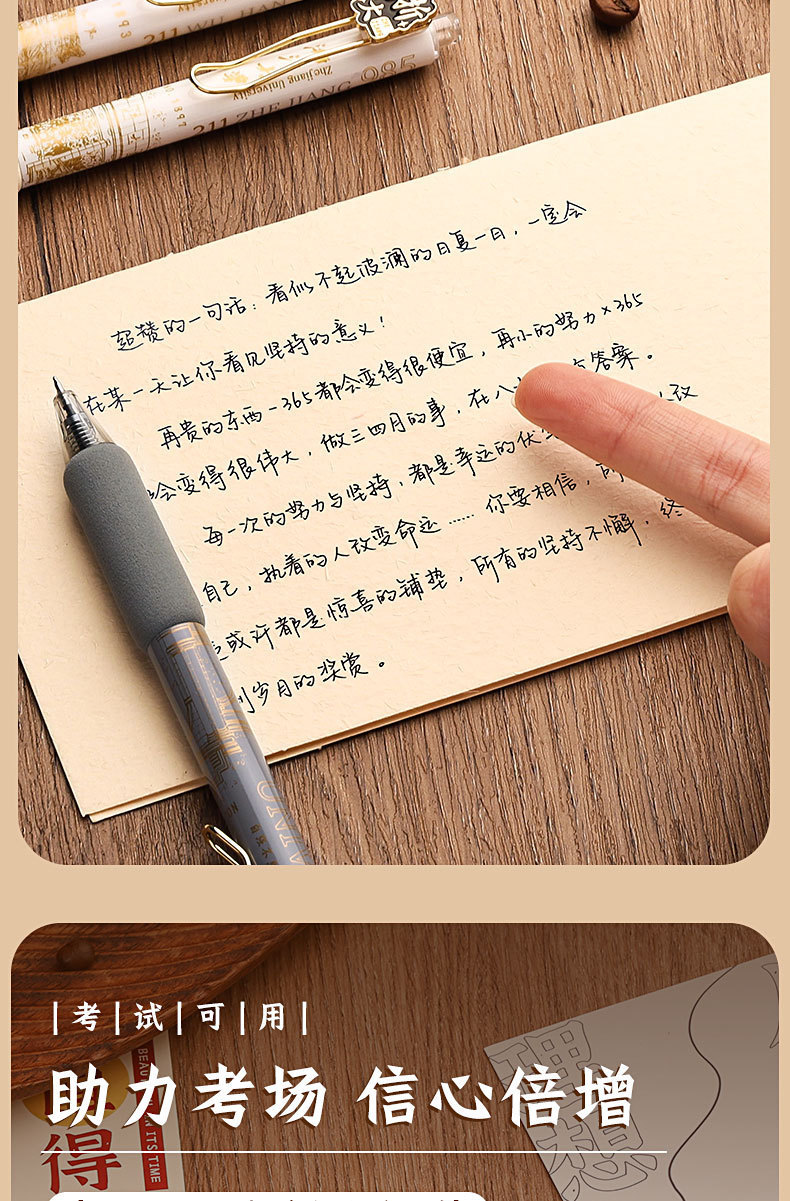 1893
211 WU HAN
浙大
Zhejiang University
1897
211 ZHE JIANG 985
超赞的一句话：看似不起波澜的日复一日，一定会
在某一天让你看见坚持的意义！
再贵的东西-365都会变得很便宜，再小的努力×365
会变得很伟大，做三四月的事，在八 有答案。
每一次的努力与坚持，都是幸运的伏
自己，执着的人改变命运……你要相信，所
或许都是惊喜的铺垫，所有的坚持不懈，终
岁月的奖赏。
|考|试|可|用|
助力考场 信心倍增
理想
得
ITS TIME